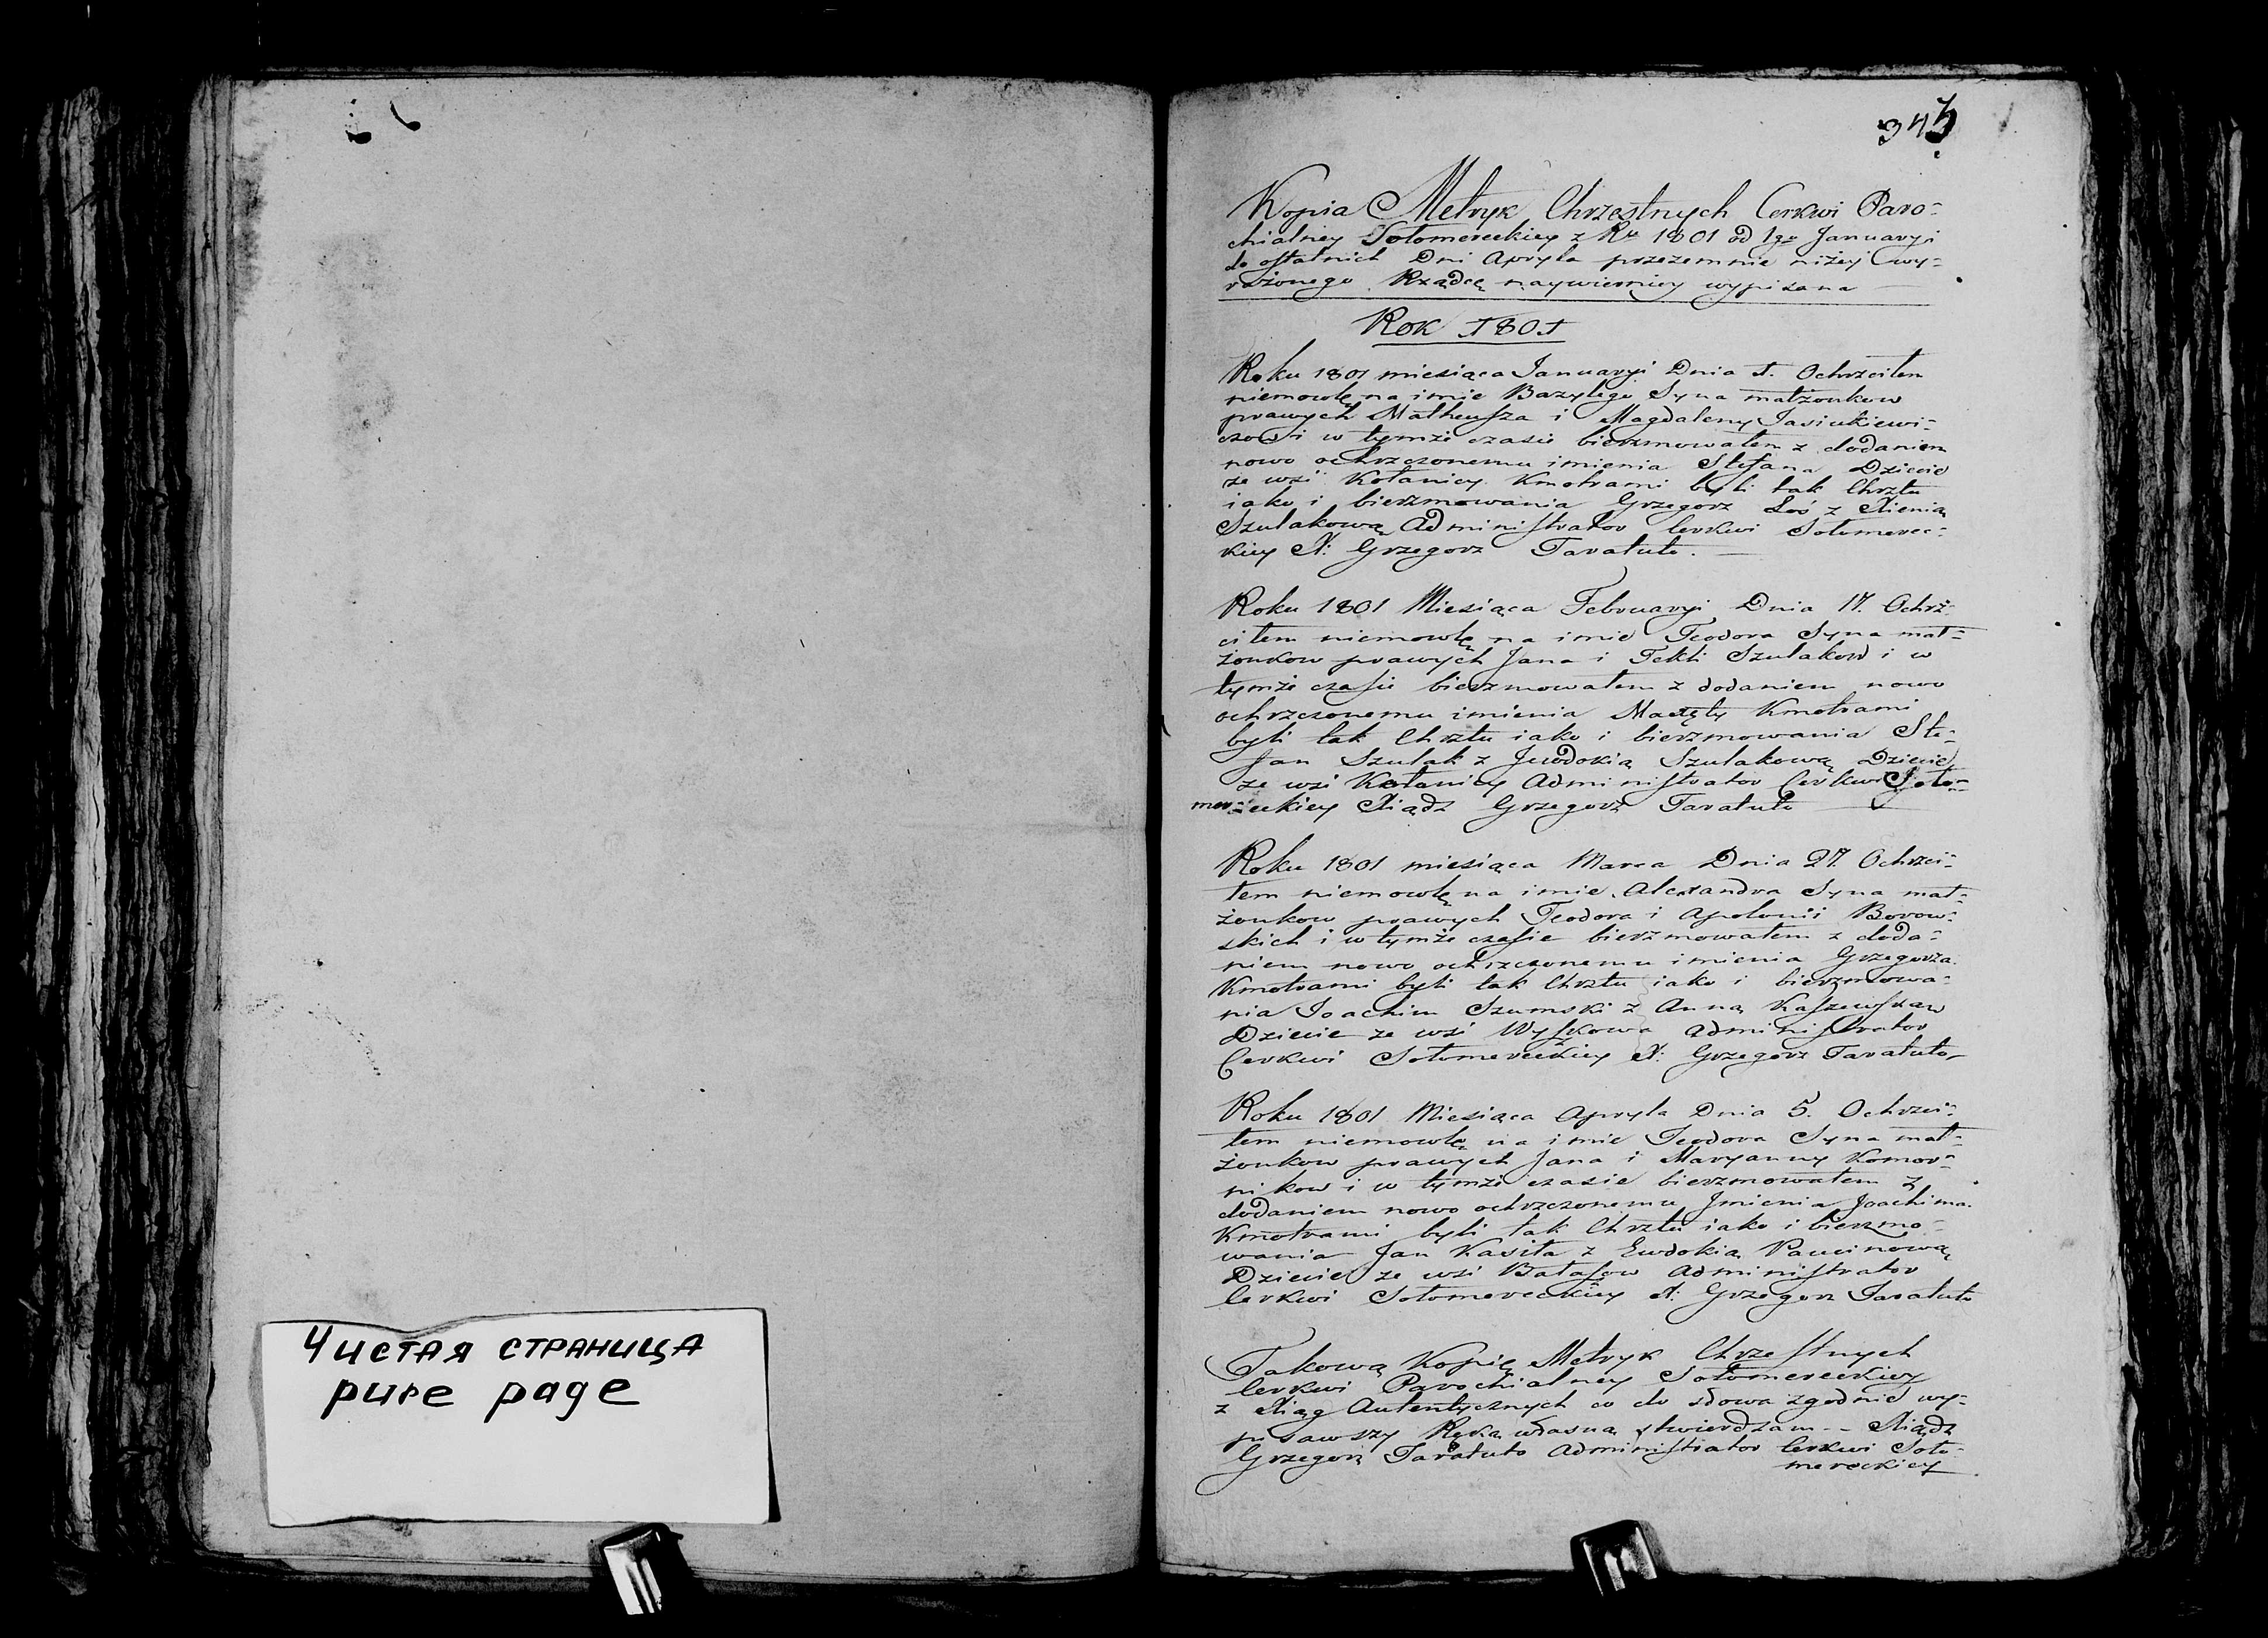 Чистая страница
pure page
Kopia Metryk Chrzestnych Cerkwi Paro-
chialney Sołomereckiey z Rku 1801 od 1go Januaryi
do ostatnich Dni Apryla przezemnie niżey wy-
rażonego Rządcę naywierniey wypisana
Rok 1801
Roku 1801 miesiąca Januaryi Dnia 1. Ochrzciłem
niemowlę na imie Bazylego Syna małżonkow
prawych Matheusza i Magdaleny Jasiukiewi-
czow i w tymże czasie bierzmowałem z dodaniem
nowo ochrzczonemu imienia Stefana Dziecie
ze wsi Kołanicy Kmotrami byli tak Chrztu
iako i bierzmowania Grzegorz Łoś z Xienią
Szulakową Administrator Cerkwi Sołomerec-
kiey X: Grzegorz Taratuto.
Roku 1801 Miesiąca Februaryi Dnia 17. Ochrz-
ciłem niemowlę na imie Teodora Syna mał-
żonkow prawych Jana i Tekli Szulakow i w
tymże czasie bierzmowałem z dodaniem nowo
ochrzczonemu imienia Kmotrami
byli tak Chrztu iako i bierzmowania Ste-
fan Szulak z Jewdokią Szulakową Dziecie
ze wsi Kołanicy Administrator Cerkwi Soło-
mereckiey Xiądz Grzegorz Taratuto
Roku 1801 miesiąca Marca Dnia 27. Ochrzci-
łem niemowlę na imie Alexandra Syna mał-
żonkow prawych Teodora i Apolonii Borow-
skich i w tymże czasie bierzmowałem z doda-
niem nowo ochrzczonemu imienia Grzegorza
Kmotrami byli tak Chrztu iako i bierzmowa-
nia Joachim Szumski z Anną
Dziecie ze wsi Wyskowa Administrator
Cerkwi Sołomereckiey X: Grzegorz Taratuto
Roku 1801 Miesiąca Apryla Dnia 5. Ochrzci-
łem niemowlę na imie Teodora Syna mał-
żonkow prawych Jana i Maryanny Komor-
nikow i w tymże czasie bierzmowałem z
dodaniem nowo ochrzczonemu Jmienia Joachima.
Kmotrami byli tak Chrztu iako i bierzmo-
wania Jan z Ewdokią
Dziecie ze wsi Administrator
Cerkwi Sołomereckiey X: Grzegorz Taratuto
Takową Kopię Metryk Chrzestnych
Cerkwi Parochialney Sołomereckiey
z Xiąg Autentycznych co do słowa zgodnie wy-
pisawszy Ręką własną stwierdzam -- Xiądz
Grzegorz Taratuto Administrator Cerkwi Soło-
mereckiey